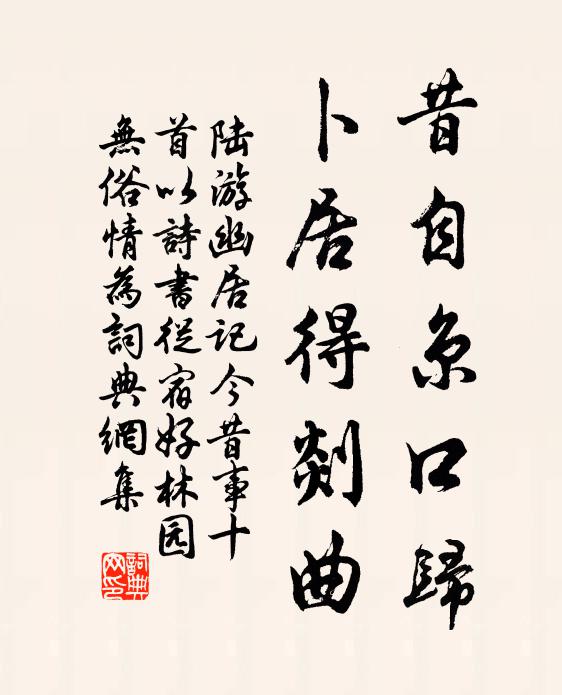 昔自京口歸
卜居得剡曲
陆游幽居记今昔事十
首以詩書從宿好林园
無俗情為詞典網集
詞典网印